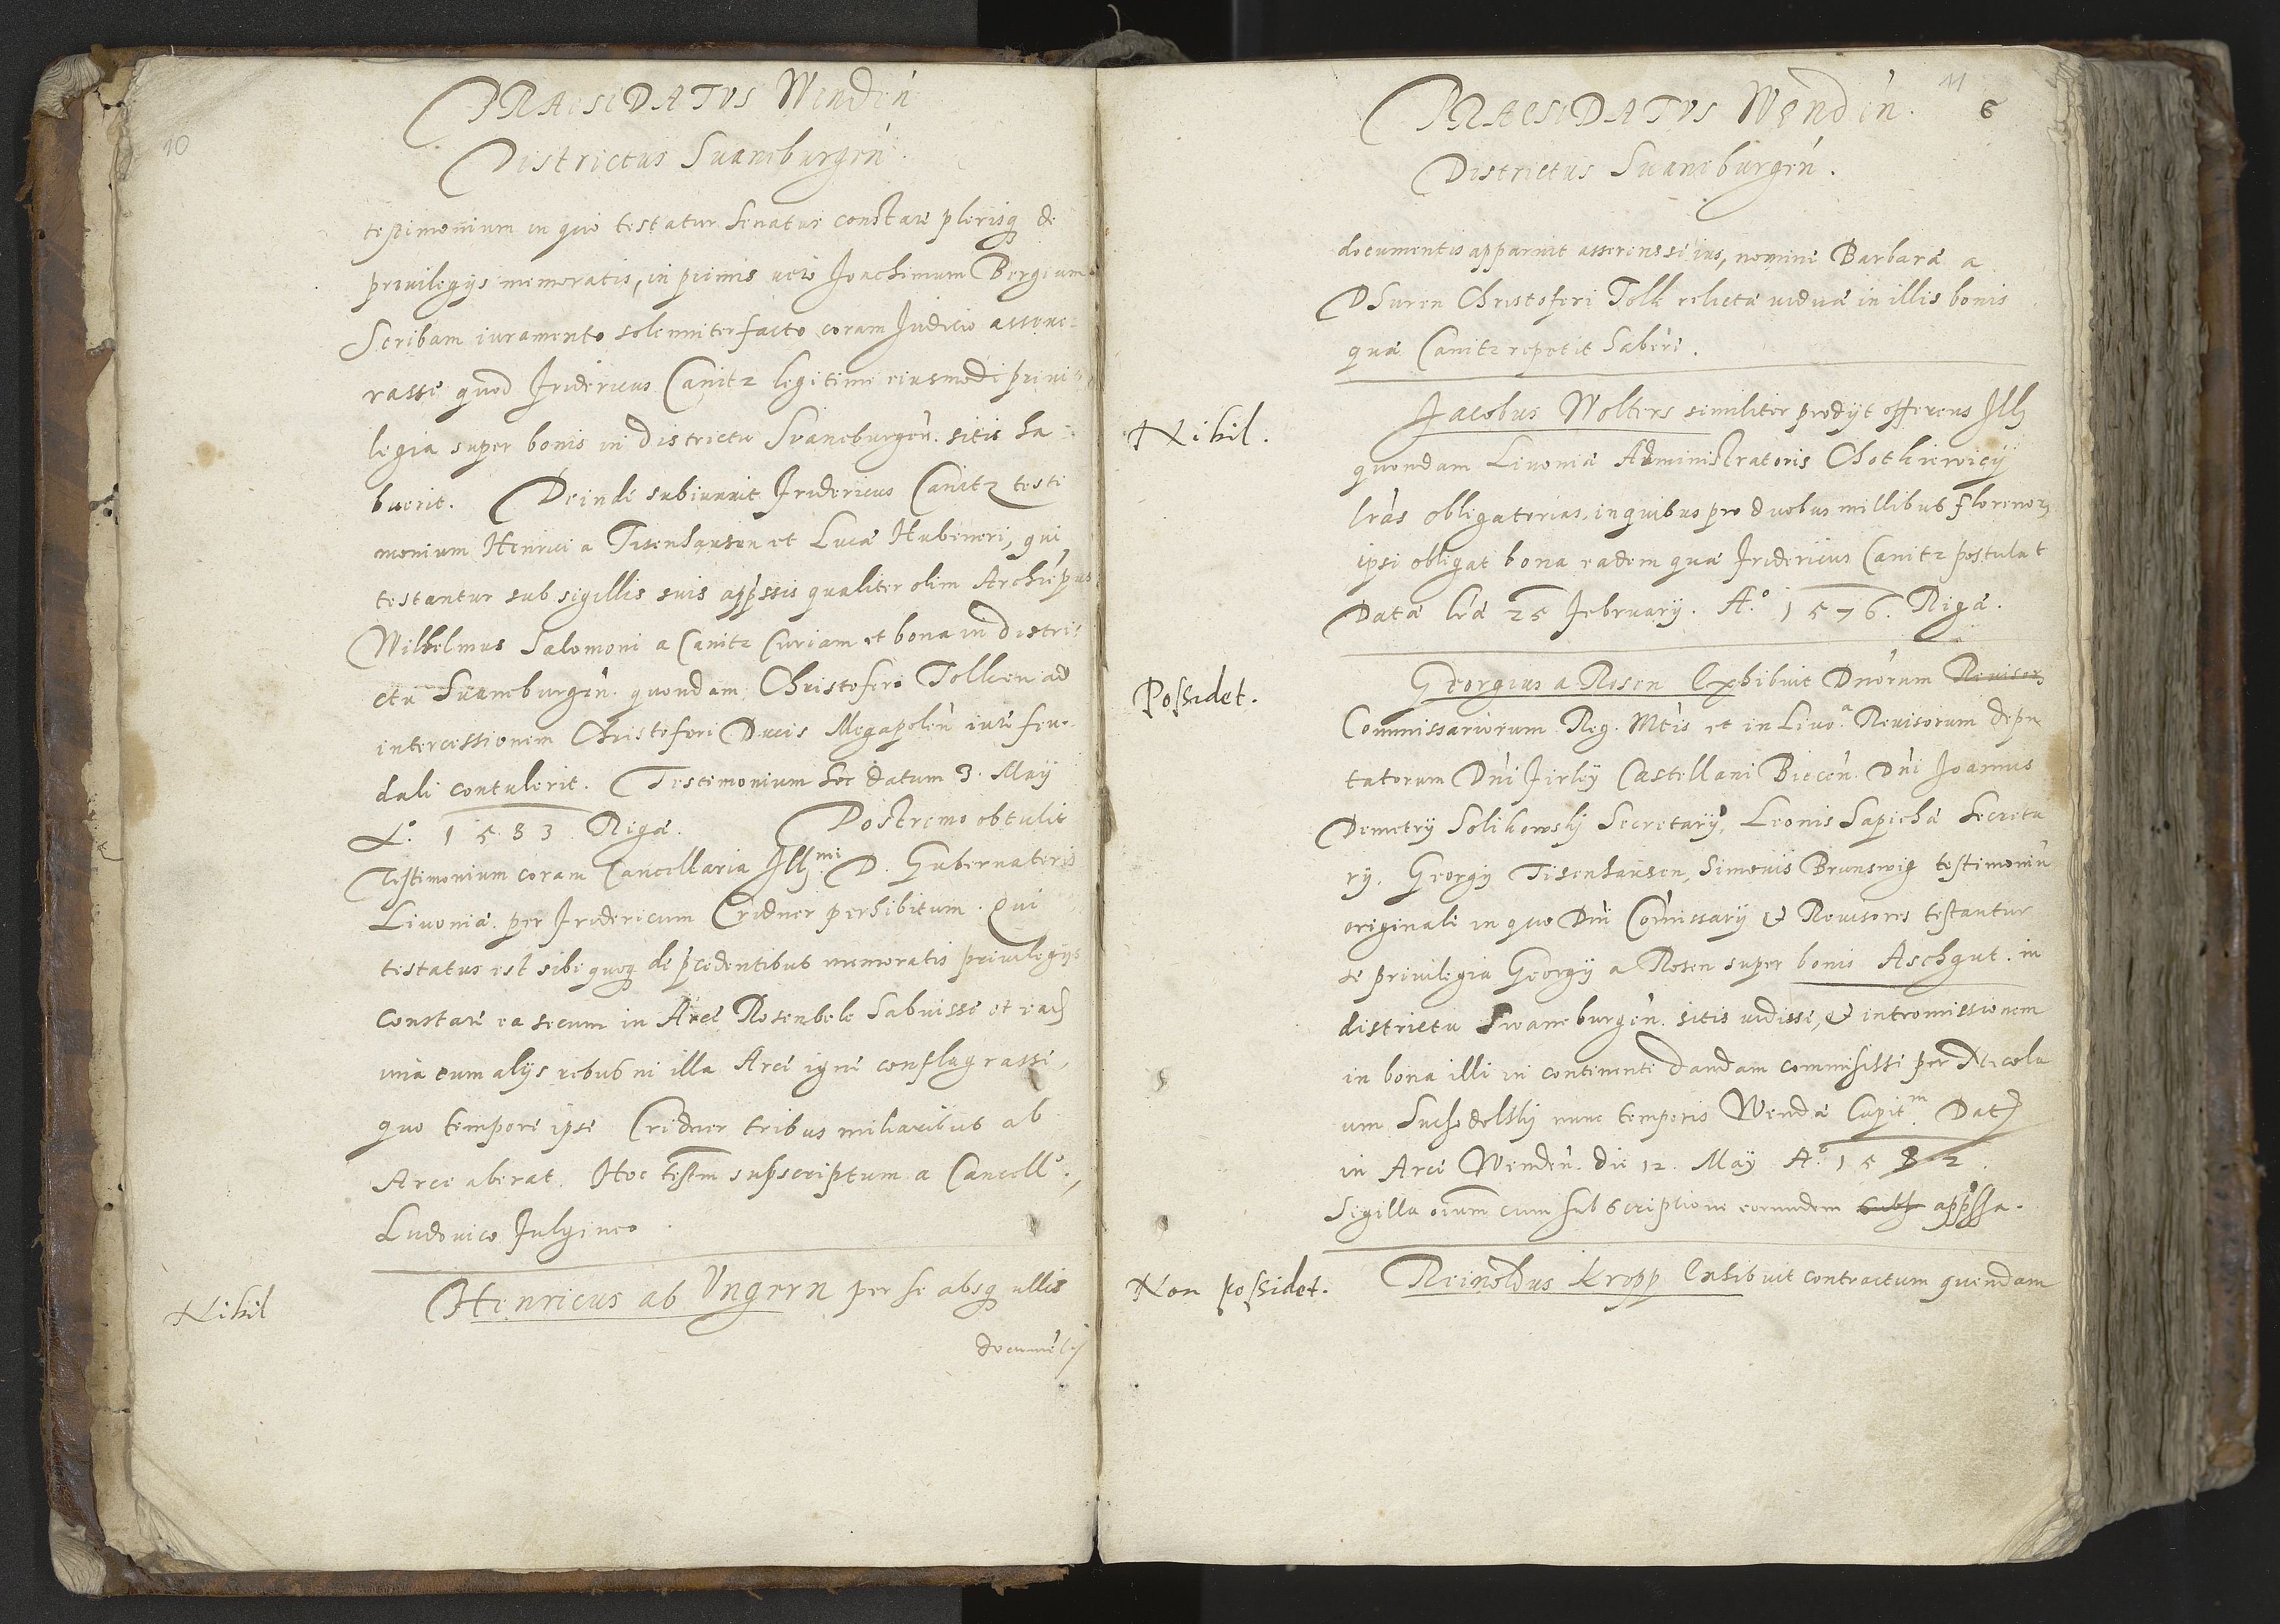 10
PRAESIDATVS Wenden̄
Districtus Suaneburgen̄.
testimonium in quo testatur Senatus constare plerisq̨ de
priuilegijs memoratis, in primis uero Joachimum Bergium
Scribam iuramento solenniter facto coram Judicio asseue-
rasse quod Fridericus Canitz legitime eiusmodi priui-
legia super bonis in districtu Svaneburgen̄. sitis ha-
buerit. Deinde subiunxit Fridericus Canitz testi
monium Henrici a Tisenhausen et Lucæ Hubeneri, qui
testantur sub sigillis suis app̄ssis qualiter olim Archiep̄us
Wilhelmus Salomoni a Canitz Curiam et bona in distri-
ctu Suaneburgen̄. quondam Christofero Tolken ad
intercessionem Christoferi Ducis Megapolen̄ iure feu-
dali contulerit. Testimonium hoc datum 3. Maÿ
A.º 1583. Rigæ. Postremo obtulit
Testimonium coram Cancellaria Ill.mi D. Gubernatoris
Liuoniæ per Fridericum Cridner perhibitum. Qui
testatus est sibi quoq̨ de p̄cedentibus memoratis priuilegijs
constare ea secum in Arce Rosenbek habuisse et ead
una cum alijs rebus in illa Arce igne conflagrasse,
quo tempore ipse Cridner tribus miliaribus ab
Arce aberat. Hoc testm̄ subscriptum a Cancell.º,
Ludouico Fulgineo.
Nihil
Henricus ab Vngern per se absq̨ ullis
documētis
11
6
PRAESIDATVS Wenden̄.
Districtus Suaneburgen̄.
documentis apparuit asserens se ius, nomine Barbaræ a
DSuren Christoferi Tolk relictæ uiduæ in illis bonis
quæ Canitz repetit habere.
Nihil.
Jacobus Wolters similiter prodijt offerens Ill
quondam Liuoniæ Administratoris Chotkiewicÿ
lr̄as obligatorias, in quibus pro duobus millibus florenor
ipsi obligat bona eadem quæ Fridericus Canitz postulat
Datæ lr̄æ 25 Februarÿ. A.º 1576. Rigæ.
Possidet.
Georgius a Rosen Exhibuit Dn̄orum Reuisor
Commissariorum Reg. Mtis et in Liuo.a Reuisorum depu
tatorum Dn̄i Firleÿ Castellani Biecen̄. Dn̄i Joannis
Demetrÿ Solikowskÿ Secretarÿ, Leonis Sapiehæ Secreta
rÿ. Georgÿ Tisenhausen, Simonis Brunswig testimoniū
originali in quo Dn̄i Com̄issarÿ & Reuisores testantur
se priuilegia Georgÿ a Rosen super bonis Aschgut. in
districtu Swaneburgen̄. sitis uidisse, & intromissionem
in bona illi in continenti dandam commisisse per Nicola
um Suchodolskÿ nunc temporis Wendæ Capit.m Dat
in Arce Wenden̄. die 12. Maÿ A.º 1582.
Sigilla oium̄ cum subscriptione eorundem sub app̄ssa.
Non possidet.
Reinoldus Kropp Exhibuit contractum quendam